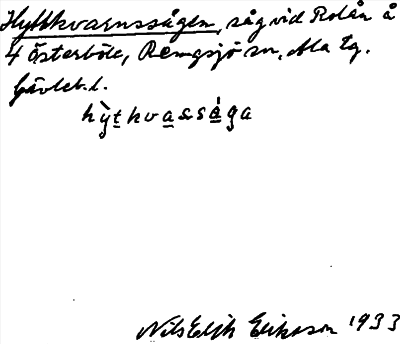 Hyttkvarnssågen, såg vid Rolån å
4 Österböle, Remgsjö sn, Ala tg.
Gävleb. l.
hỳt̲hva̲ssá̲ga
Nils Erik Eriksson 1933